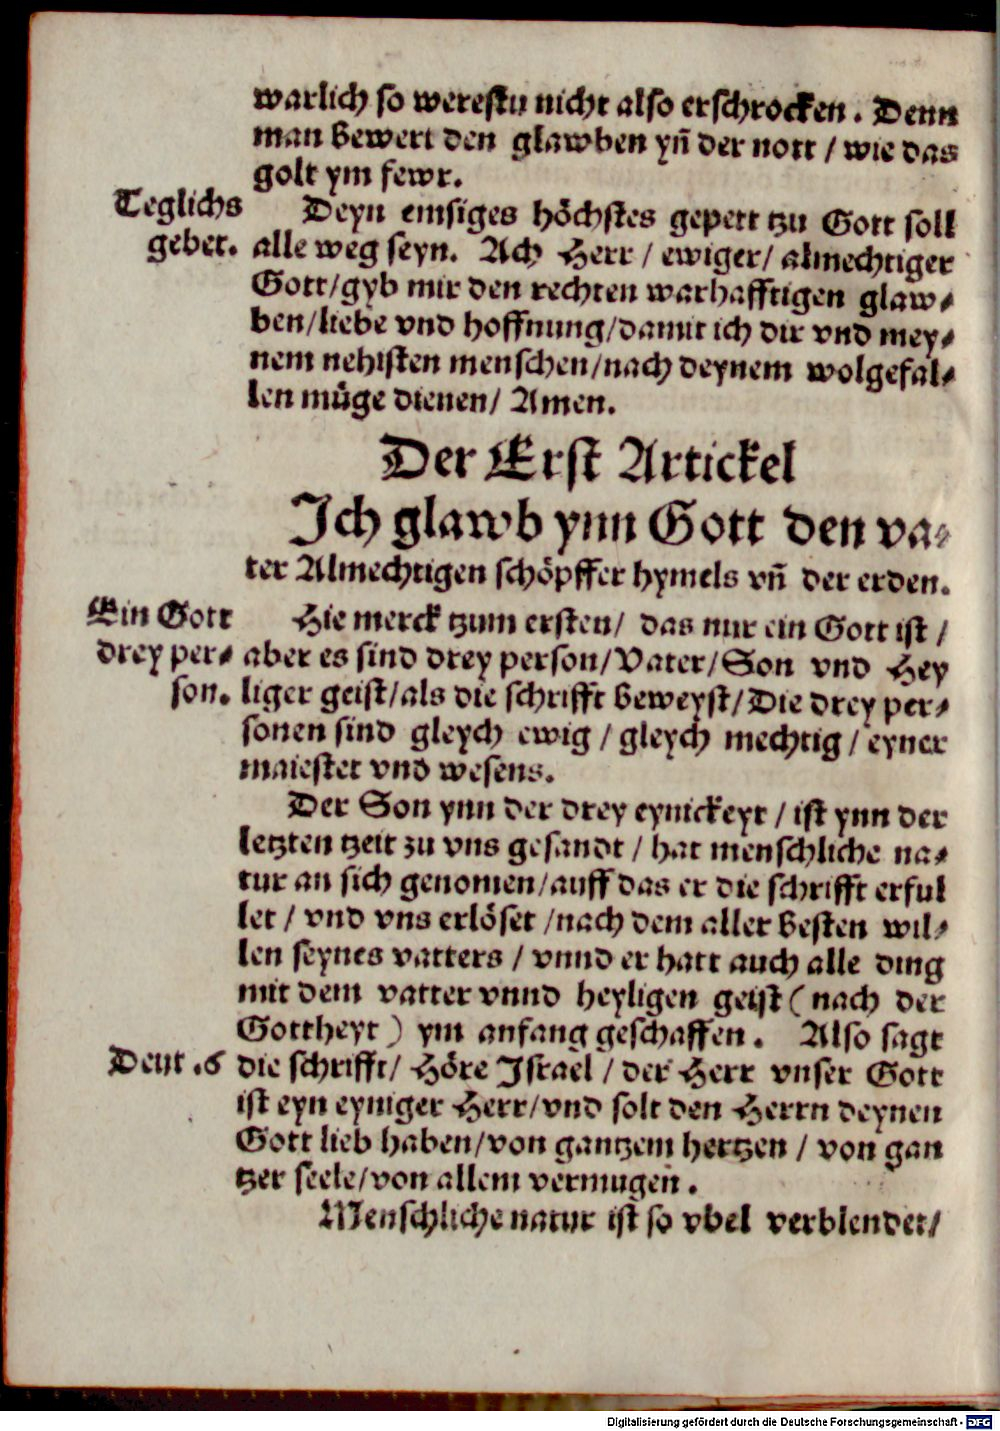 warlich so werestu nicht also erschrocken. Denn
man bewert den glawben yñ der nott / wie das
golt ym fewr.
Teglichs
gebet.
Deyn einsiges höchstes gepett tzu Gott soll
alle weg seyn. Ach Herr / ewiger / almechtiger
Gott/gyb mir den rechten warhafftigen glaw⸗
ben/liebe vnd hoffnung/damit ich dir vnd mey⸗
nem nehisten menschen/nach deynem wolgefal⸗
len müge dienen/ Amen.
Der Erst Artickel
Ich glawb ynn Gott den va⸗
ter Almechtigen schöpffer hymels vñ der erden.
Ein Gott
drey per⸗
son.
Hie merck tzum ersten/ das nur ein Gott ist /
aber es sind drey person/Vater/Son vnd Hey
liger geist/als die schrifft beweyst/Die drey per⸗
sonen sind gleych ewig / gleych mechtig / eyner
maiestet vnd wesens.
Der Son ynn der drey eynickeyt / ist ynn der
letzten tzeit zu vns gesandt / hat menschliche na⸗
tur an sich genomen/auff das er die schrifft erful
let / vnd vns erlöset /nach dem aller besten wil⸗
len seynes vatters / vnnd er hatt auch alle ding
mit dem vatter vnnd heyligen geist ( nach der
Gottheyt ) ym anfang geschaffen. Also sagt
Deut .6
die schrifft/ Höre Israel / der Herr vnser Gott
ist eyn eyniger Herr/vnd solt den Herrn deynen
Gott lieb haben/von gantzem hertzen / von gan
tzer seele/von allem vermugen.
Menschliche natur ist so vbel verblendet/
Digitalisierung gefördert durch die Deutsche Forschungsgemeinschaft - DFG